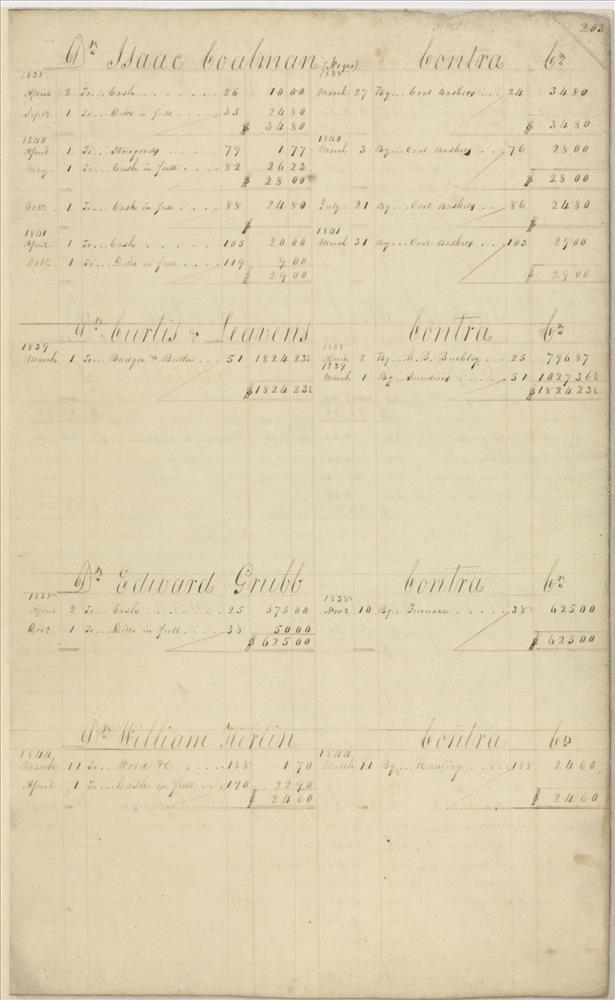 203
Dr Isaac Coalman (Negro) Contra Cr
1838 1838
April 2 To... Cash 26 10 00 March 27 By... Coal Baskets 24 34 80
Sept. 1 To... Ditto in full 35 24 80
$ 34 80 $ 34 80
1840 1840
April 1 To... 79 1 77 March 3 By... Coal Baskets 76 28 00
May 1 To... Cash in full 82 26 23
$ 28 00 $ 28 00
Octr. 1 To... Cash in full 88 24 80 July 21 By... Coal Baskets 86 24 80
$ $
1841 1841
April 1 To... Cash 105 20 00 March 31 By... Coal Baskets 103 29 00
Octr. 1 To... Ditto in full 119 9 00
$ 29 00 $ 29 00
Dr Curtis & Leavens Contra Cr
1839 1838
March 1 To... Badger & Butler 51 1824 23½ April 2 By... A. B. Buckley 25 796 87
1839
March 1 By... Sundries 51 1027 36½
$ 1824 23½ $ 1824 23½
Dr Edward Grubb Contra Cr
1838 1838
April 2 To... Cash 25 575 00 Novr. 10 By... Furnace 38 625 00
1 To... Ditto in full 38 50 00
$ 625 00 $ 625 00
Dr William Kerlin Contra Cr
1844 1844
March 11 To... Wood &c 188 1 70 March 11 By... Hauling 188 24 60
April 1 To... Cash in full 190 22 90
$ 24 60 $ 24 60